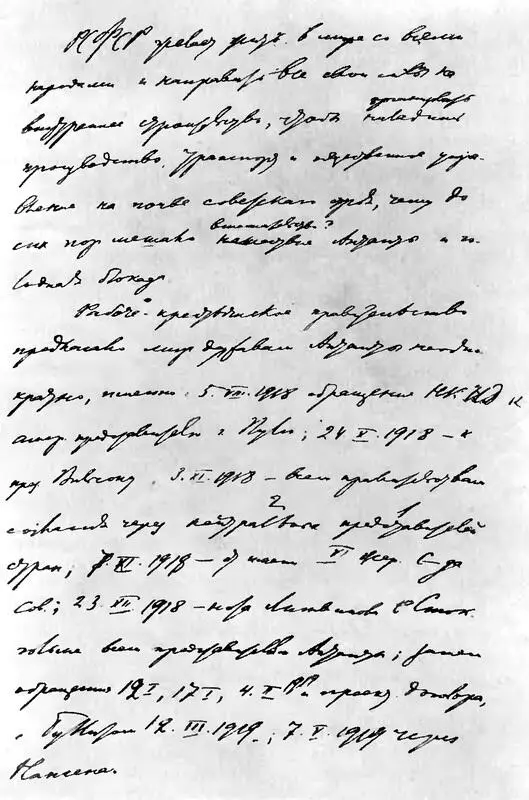 РСФСР желает жить в мире со всеми
народами и направить все свои силы на
внутреннее строительство, чтобы наладить
производство, транспорт и общественное управ-
ление на почве советского строя, чему до
сих пор мешало вмешательство Антанты и го-
лодная блокада.
Рабоче-крестьянское правительство
предлагало мир державам Антанты неодно-
кратно, именно: 5. VIII. 1918 обращение НКИД к
амер. представителю г. Пулю; 24. X. 1918 – к
през. Вильсону; 3. XI. 1918 – всем правительствам
согласия через нейтральных представителей
стран; 7. XI. 1918 – от имени VI Всер. С-да
Сов.; 23. XII. 1918 – нота Литвинова в Сток-
гольме всем представителям Антанты; затем
обращения 12 I, 17 I, 4. II и проект договора,
с Буллитом 12. III. 1919; 7. V. 1919 через
Нансена.